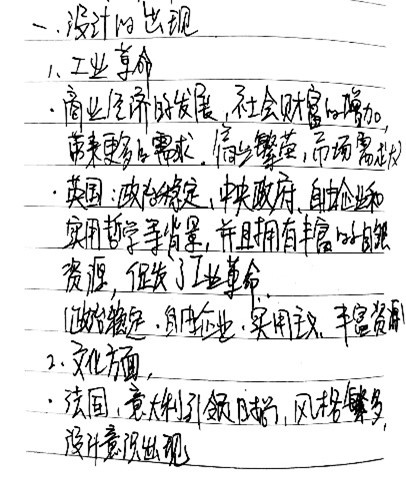 一.设计的出现
1、工业革命
·商业经济的发展,社会财富的增加,
带来更多的需求.商业繁荣,市场需越大
·英国:政治稳定,中央政府、自由企业和
实用哲学等背景,并且拥有丰富的自然
资源,促发了工业革命..
(政治稳定.自由企业.实用主义.丰富资源)
2.文化方面,
·法国,意大利引领时尚,风格繁多,
设计意识出现